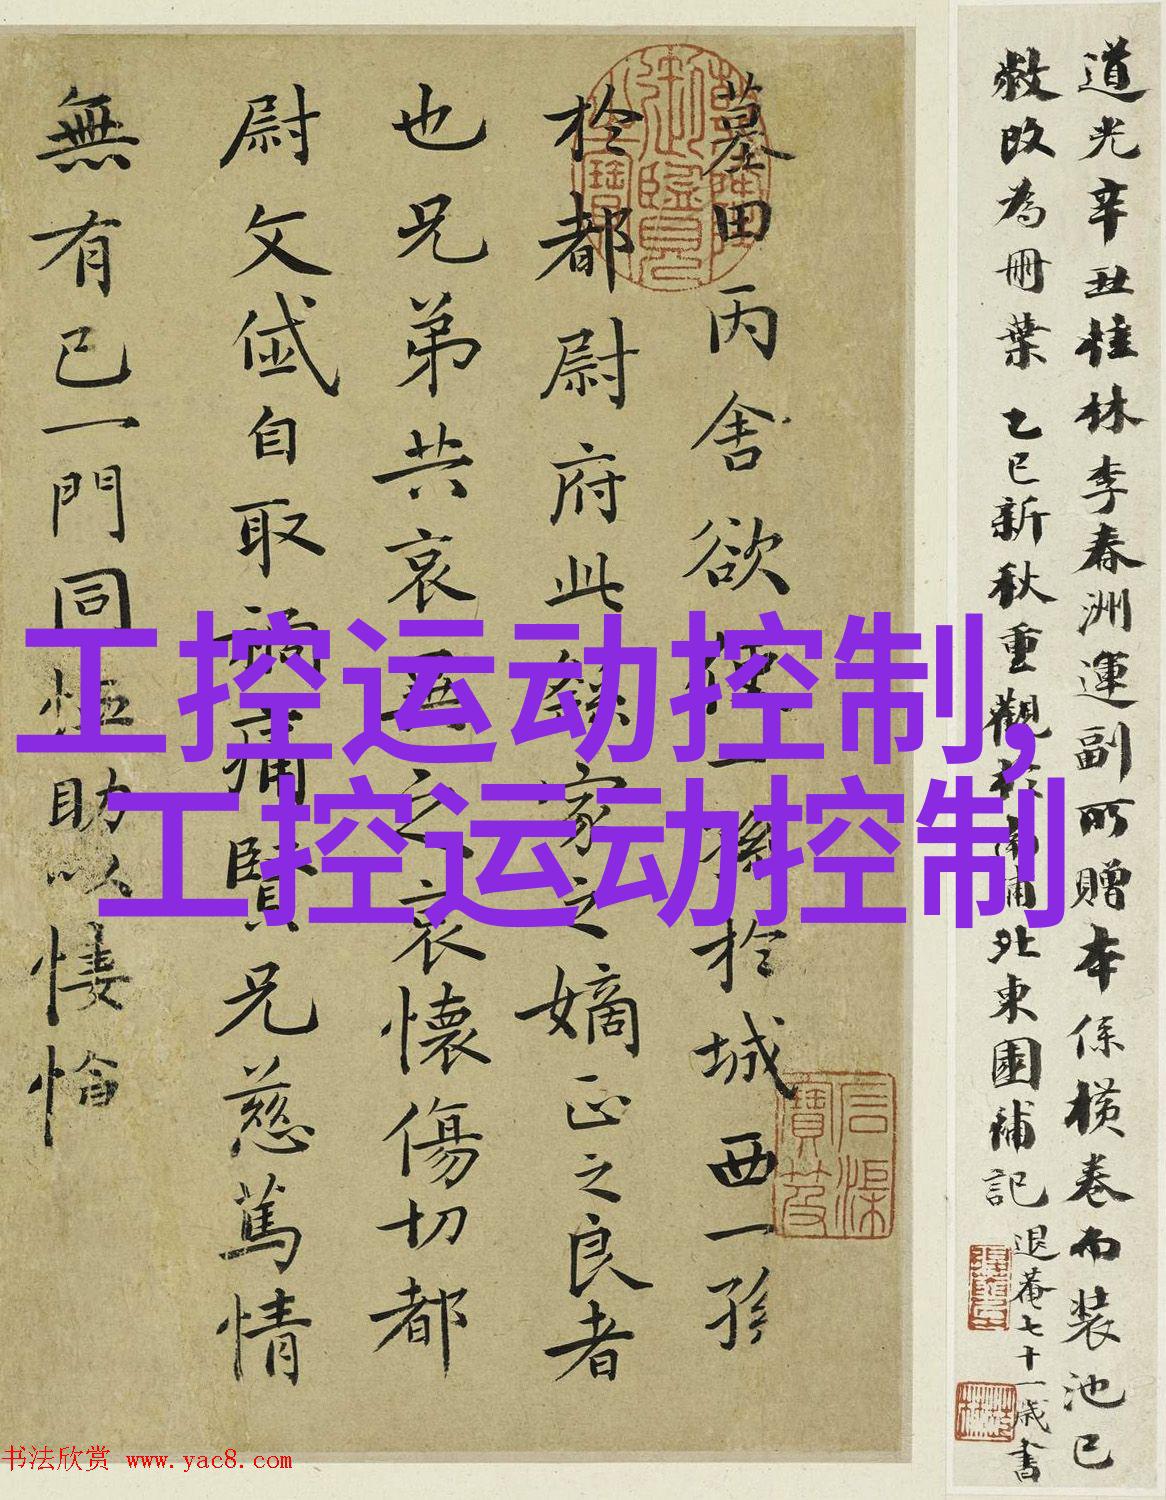 道光辛丑桂林李春洲運副所贈本係橫卷而裝池已
敝改為冊葉 乙巳新秋重觀於南浦北東園補記 退菴七十一歲書
墓田丙舍欲使一孫於城西一孫
於都尉府此繇家之嫡正之良者
也兄弟共哀異之哀懷傷切都
尉文岱自取禍痛賢兄慈篤情
無有已一門同恤助以悽愴
工控运动控制,
工控运动控制
御覽
书法欣赏 www.yac8.com